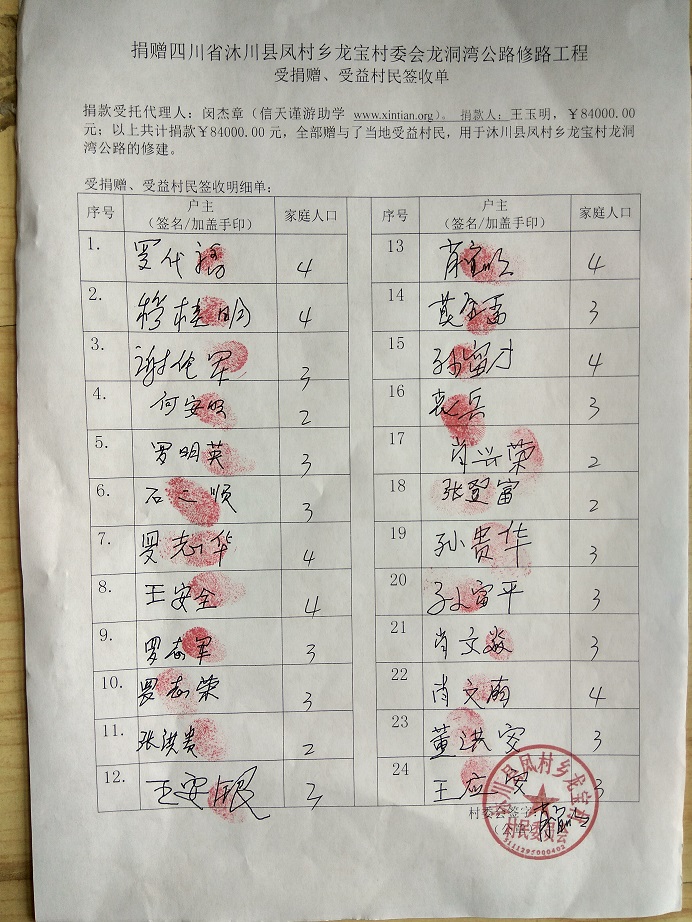 捐赠四川省沐川县凤村乡龙宝村委会龙洞湾公路修路工程
受捐赠、受益村民签收单
捐款受托代理人：闵杰章（信天谨游助学 www.xintian.org）。捐款人：王玉明，￥84000.00
元；以上共计捐款￥84000.00 元，全部赠与了当地受益村民，用于沐川县凤村乡龙宝村龙洞
湾公路的修建。
受捐赠、受益村民签收明细单：
序号 户主（签名/加盖手印） 家庭人口 序号 户主（签名/加盖手印） 家庭人口
1. 罗代 4 13 肖 4
2. 桂明 4 14 3
3. 谢伦军 3 15 孙富才 4
4. 何安明 2 16 袁兵 3
5. 罗明英 3 17 肖兴荣 2
6. 石三顺 3 18 张登富 2
7. 罗志华 4 19 孙贵华 3
8. 王安全 4 20 孙富平 3
9. 罗志军 3 21 肖文 3
10. 罗志荣 3 22 肖文 4
11. 张洪贵 2 23 董洪安 3
12. 王安银 3 24 王应安 3
村委会签字：
沐川县凤村乡龙宝村
村民委员会
5111295000402